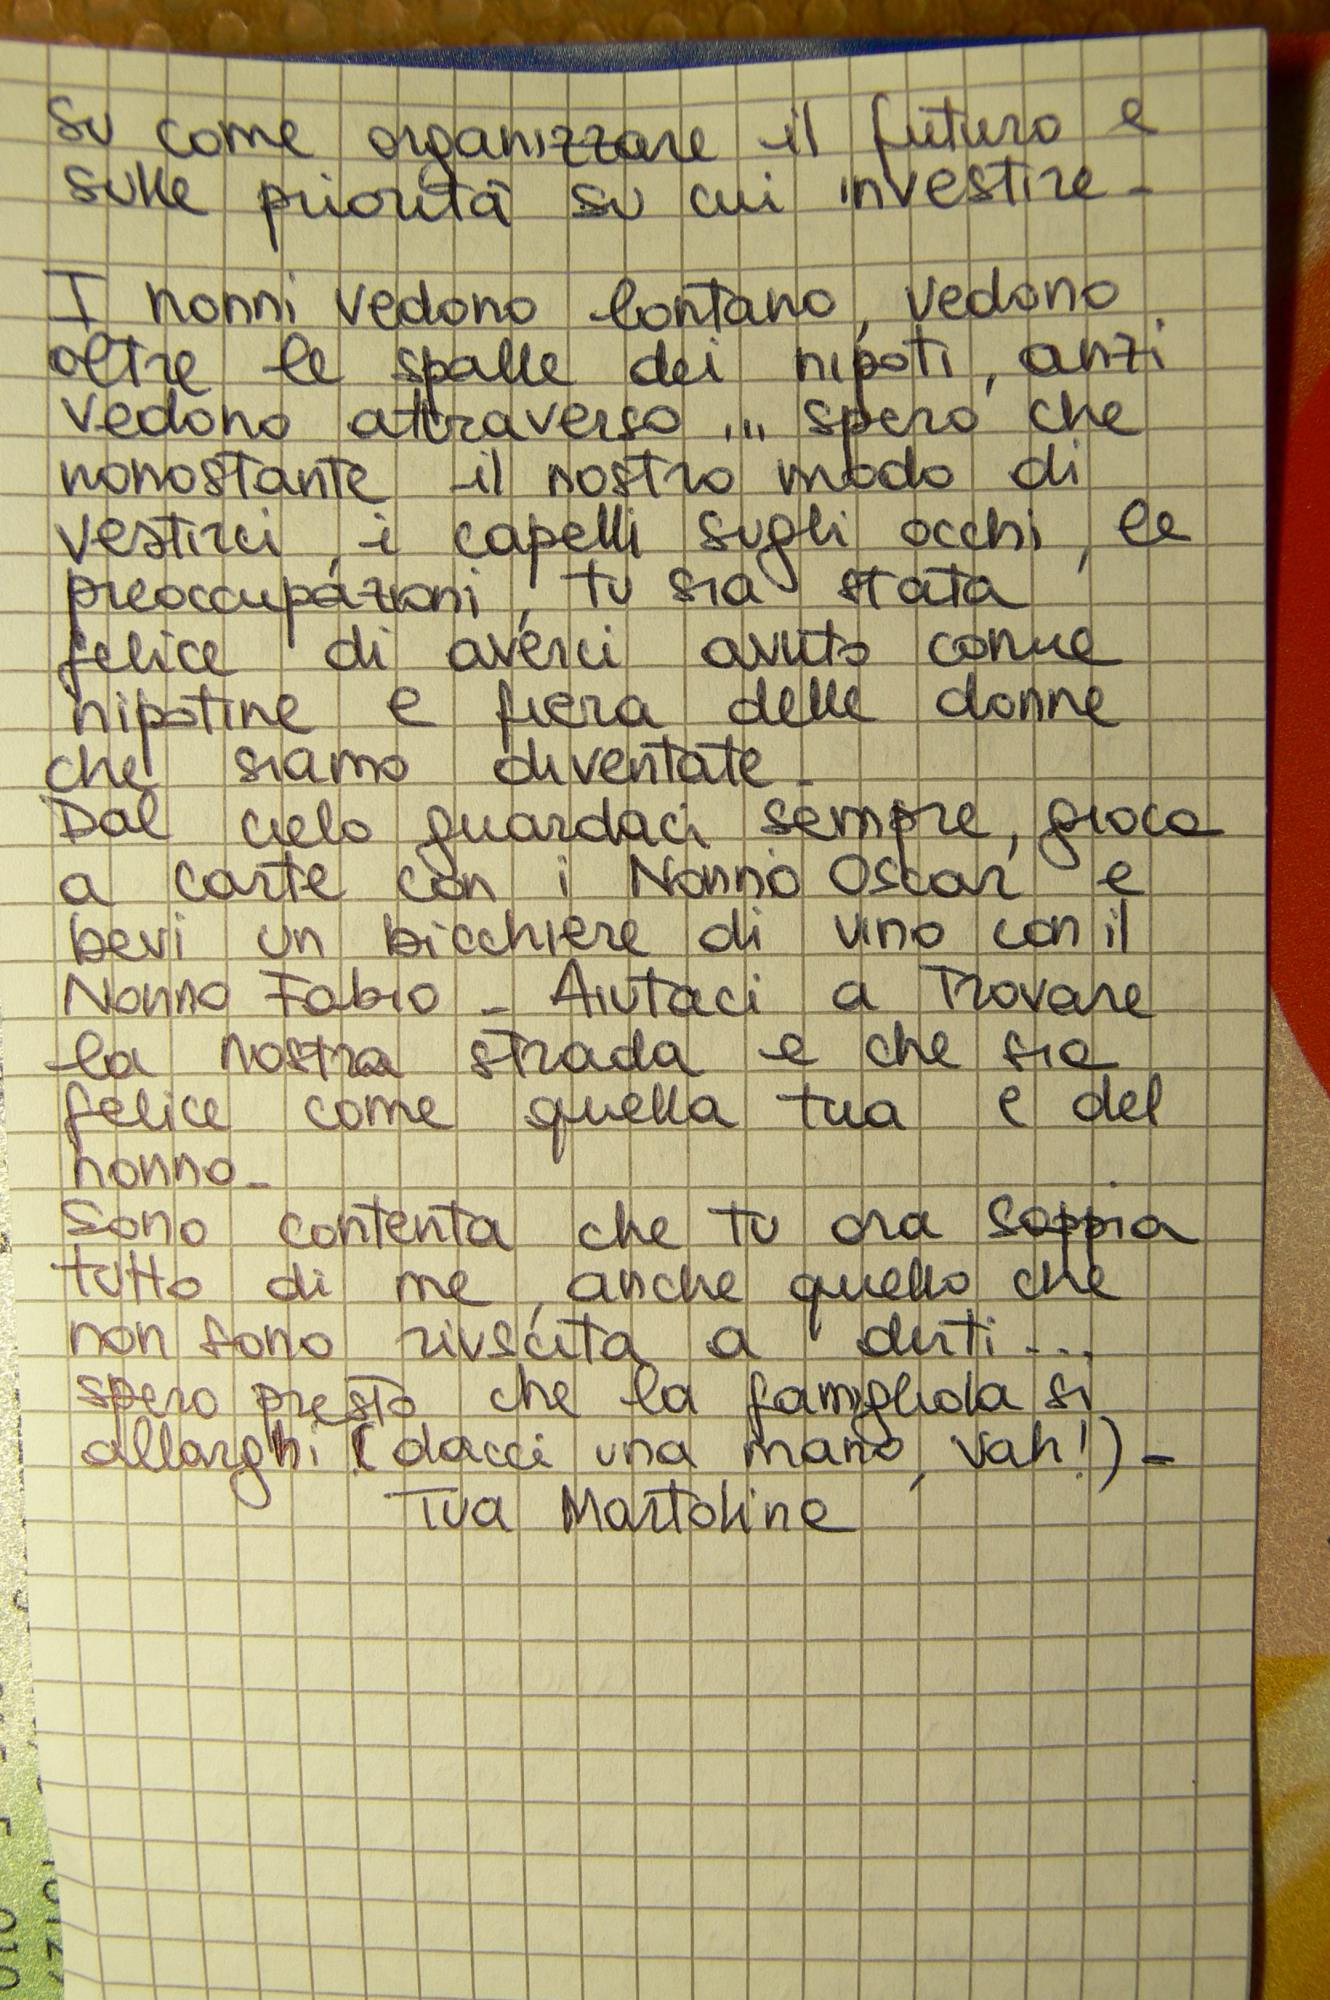 Su come organizzare il futuro e
sulle priorità su cui investire -
I nonni vedono lontano, vedono
oltre le spalle dei nipoti, anzi
vedono attraverso ... spero che
nonostante il nostro modo di
vestirci, i capelli sugli occhi, le
preoccupazioni, tu sia stata
felice di averci avuto come
nipotine e fiera delle donne
che siamo diventate -
Dal cielo guardaci sempre, gioca
a carte con i Nonno Oscar e
bevi un bicchiere di vino con il
Nonno Fabio - Aiutaci a trovare
la nostra strada e che sia
felice come quella tua e del
nonno -
Sono contenta che tu ora sappia
tutto di me, anche quello che
non sono riuscita a dirti ...
spero presto che la famigliola si
allarghi (dacci una mano, vah!) -
Tua Martoline